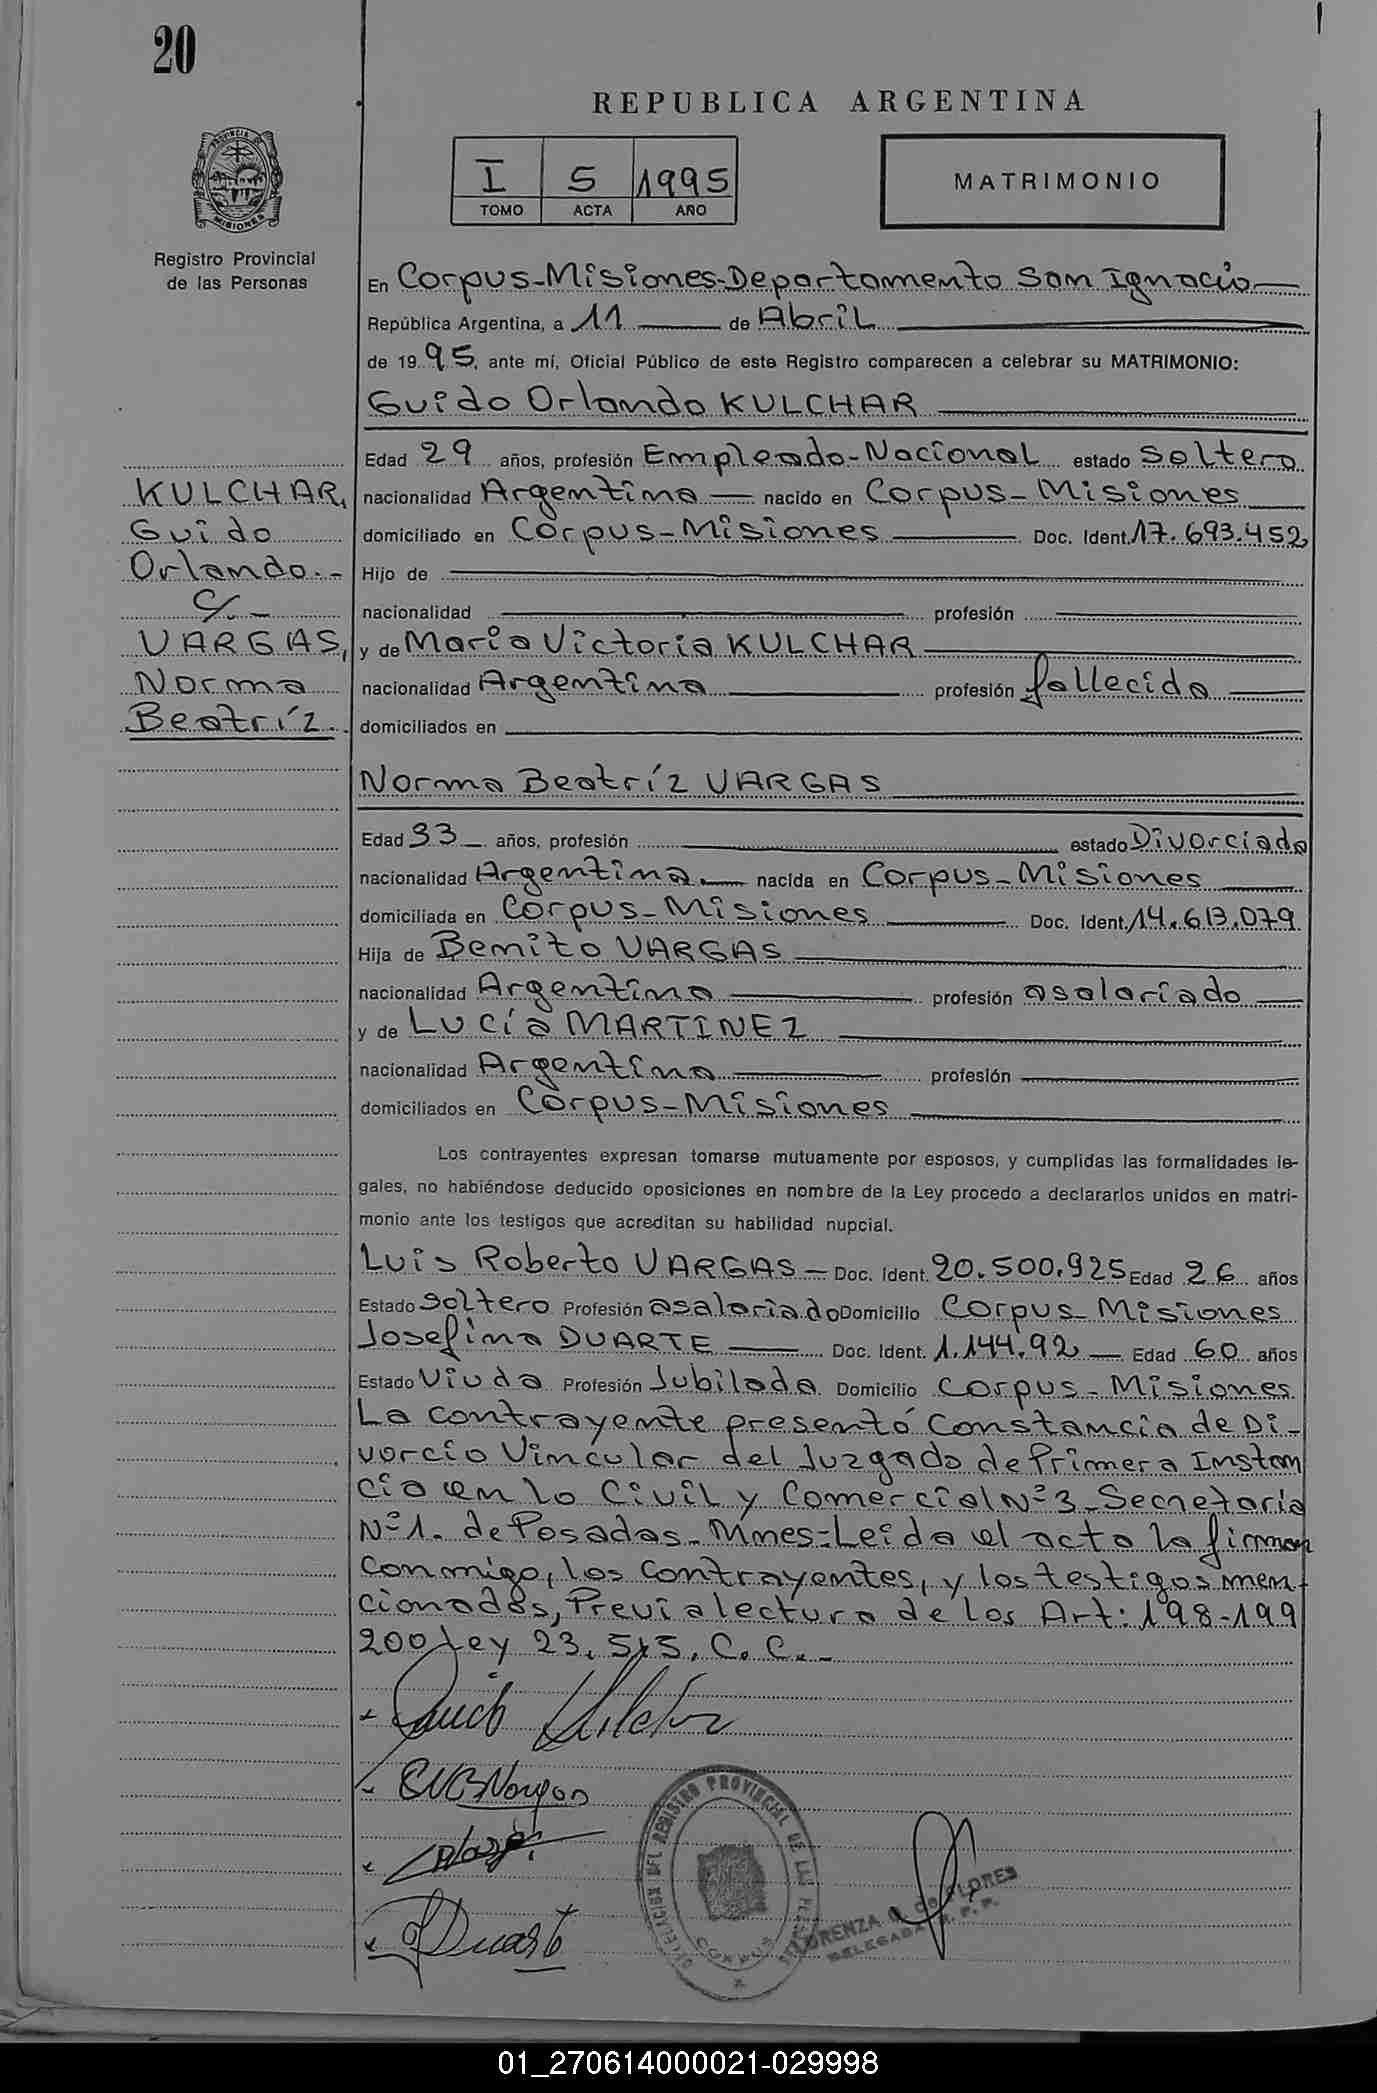 20
REPUBLICA ARGENTINA
I 5 1995
TOMO ACTA AÑO
MATRIMONIO
PROVINCIA DE
MISIONES
Registro Provincial
de las Personas
En Corpus-Misiones-Departamento San Ignacio
República Argentina, a 11 de Abril
de 1995, ante mí, Oficial Público de este Registro comparecen a celebrar su MATRIMONIO:
Guido Orlando KULCHAR
Edad 29 años, profesión Empleado-Nacional estado Soltero
nacionalidad Argentina nacido en Corpus-Misiones
domiciliado en Corpus-Misiones Doc. Ident. 17.693.452
Hijo de
nacionalidad profesión
y de Maria Victoria KULCHAR
nacionalidad Argentina profesión fallecida
domiciliados en
KULCHAR,
Guido
Orlando.-
C/-
VARGAS,
Norma
Beatríz.
Norma Beatríz VARGAS
Edad 33 años, profesión estado Divorciada
nacionalidad Argentina nacida en Corpus-Misiones
domiciliada en Corpus-Misiones Doc. Ident. 14.613.079
Hija de Benito VARGAS
nacionalidad Argentina profesión asalariado
y de Lucía MARTINEZ
nacionalidad Argentina profesión
domiciliados en Corpus-Misiones
Los contrayentes expresan tomarse mutuamente por esposos, y cumplidas las formalidades le-
gales, no habiéndose deducido oposiciones en nombre de la Ley procedo a declararlos unidos en matri-
monio ante los testigos que acreditan su habilidad nupcial.
Luis Roberto VARGAS - Doc. Ident. 20.500.925 Edad 26 años
Estado Soltero Profesión asalariado Domicilio Corpus-Misiones
Josefina DUARTE Doc. Ident. 1.144.92 Edad 60 años
Estado Viuda Profesión Jubilada Domicilio Corpus-Misiones
La contrayente presentó Constancia de Di-
vorcio Vincular del Juzgado de Primera Instan
cia en lo Civil y Comercial Nº 3-Secretaria
Nº 1. de Posadas-Mnes=Leida el acta la firman
conmigo, los contrayentes, y los testigos men-
cionados, Previa lectura de los Art: 198-199
200 Ley 23.515. C.C.-
DELEGACION DEL REGISTRO PROVINCIAL DE LAS PERSONAS
CORPUS
LORENZA G. de FLORES
DELEGADA R. P. P.
J Duarte
01_270614000021-029998